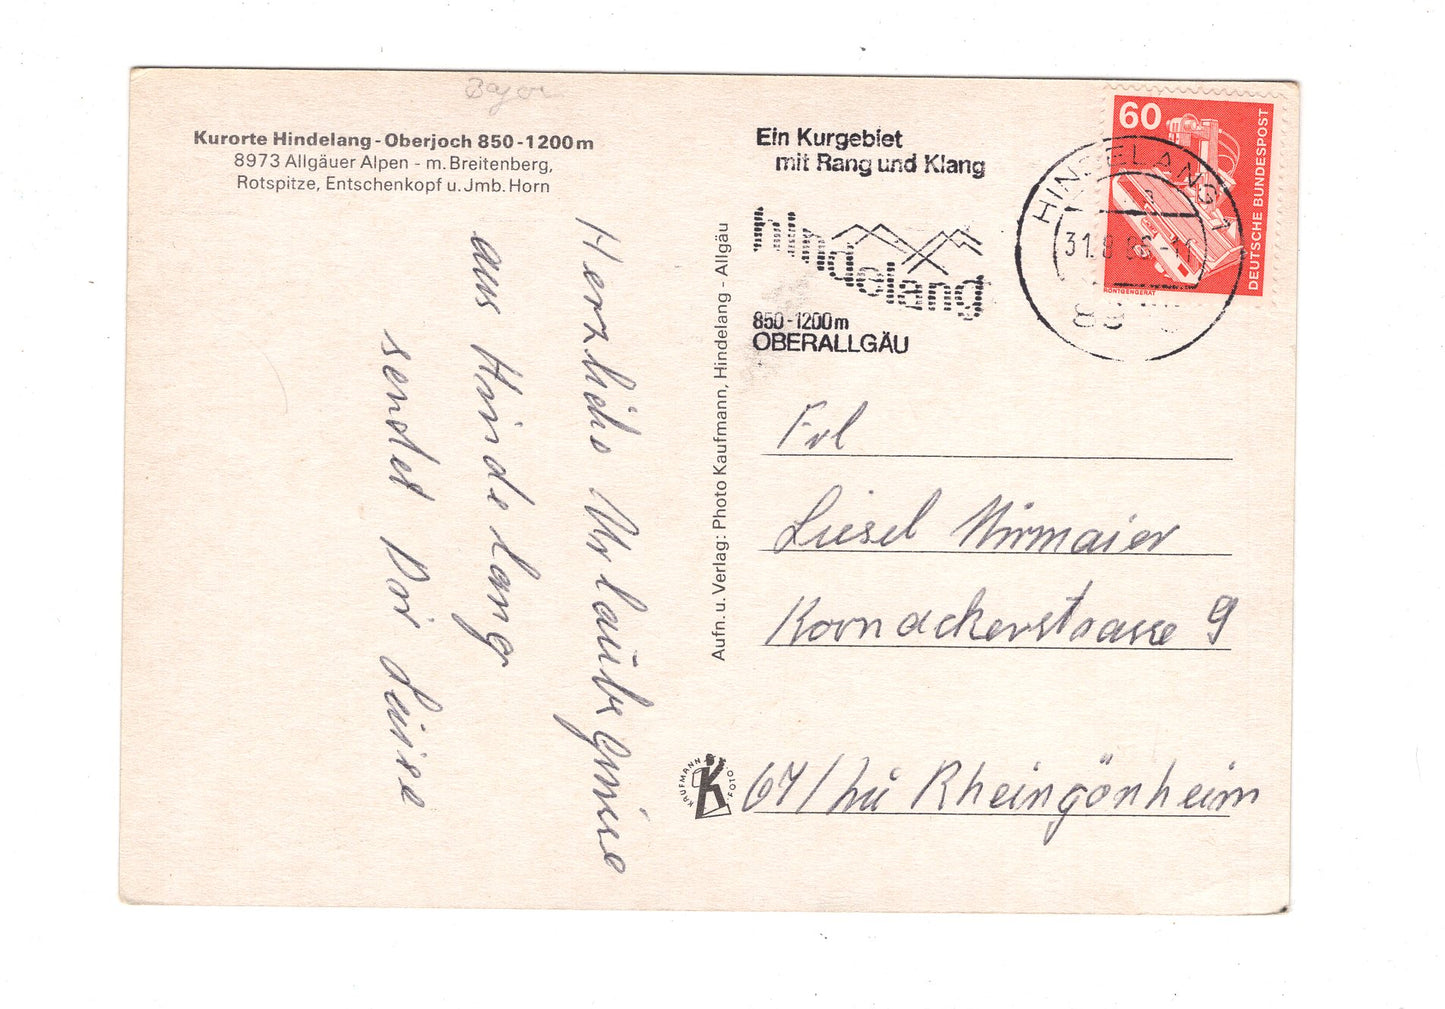 Kurorte Hindelang - Oberjoch 850-1200m
8973 Allgäuer Alpen - m. Breitenberg,
Rotspitze, Entschenkopf u. Jmb. Horn
Herzliche Urlaubsgrüße
aus Hindelang
sendet Dir Luise
Aufn. u. Verlag: Photo Kaufmann, Hindelang - Allgäu
KAUFMANN FOTO
K
Ein Kurgebiet
mit Rang und Klang
Hindelang
850-1200m
OBERALLGÄU
HINDELANG 1
a
31.8.86-11
60
DEUTSCHE BUNDESPOST
RÖNTGENGERÄT
Frl
Liesel
Kornackerstrasse 9
67/Lu Rheingönheim